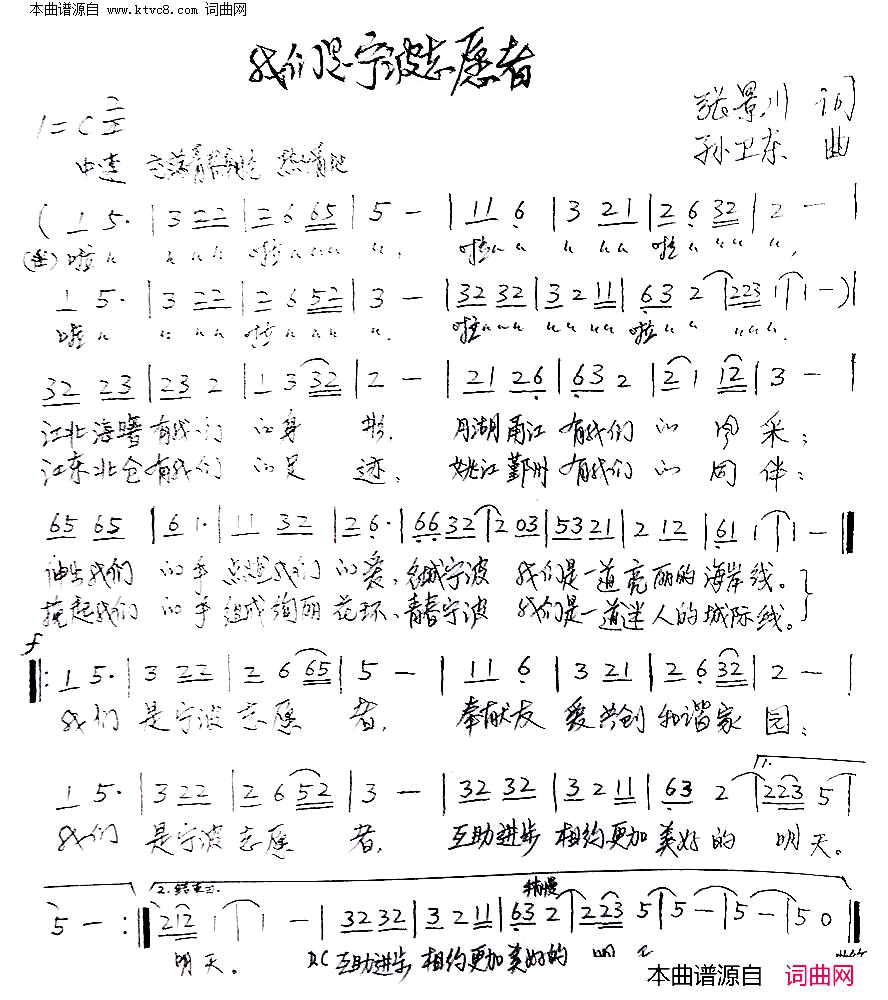 本曲谱源自 www.ktvc8.com 词曲网
我们是宁波志愿者
张景川 词
1=C 2/4
孙卫东 曲
中速 热情地
( 1 5· | 3 22 | 2 6 65 | 5 — | 11 6 | 3 21 | 2 6 32 | 2 — |
啦 〃 〃 〃〃 啦〃〃〃 〃, 啦〃〃 〃 〃〃 啦〃〃〃 〃,
1 5· | 3 22 | 2 6 52 | 3 — | 32 32 | 3 2 11 | 63 2 | 223 1 | 1 — ) |
啦 〃 〃 〃〃 啦〃〃〃 〃. 啦〃〃〃 〃 〃〃〃 啦〃〃 〃〃〃.
32 23 | 23 2 | 1 3 32 | 2 — | 21 26 | 63 2 | 2 1 12 | 3 — |
江北海曙有我们 的身 影, 月湖甬江 有我们 的 风 采;
江东北仑有我们 的足 迹, 姚江鄞州 有我们 的 同 伴;
65 65 | 6 1· | 11 32 | 2 6· | 66 32 | 2 03 | 53 21 | 2 12 | 61 1 | 1 — ‖
伸出我们 的手 点燃我们 的爱, 名城宁波 我们是一道亮丽的海岸线。
挽起我们 的手 组成绚丽 花环, 青春宁波 我们是一道迷人的城际线。
f
‖: 1 5· | 3 22 | 2 6 65 | 5 — | 11 6 | 3 21 | 2 6 32 | 2 — |
我们 是宁波 志愿 者, 奉献友 爱共创 和谐家 园;
1.
1 5· | 3 22 | 2 6 52 | 3 — | 32 32 | 3 2 11 | 63 2 | 223 5 |
我们 是宁波 志愿 者, 互助进步 相约更加美好的 明天。
2. 结束句. 稍慢
5 — :‖ 212 1 | 1 — | 32 32 | 3 2 11 | 63 2 | 223 5 | 5 — | 5 — | 5 0 ‖
明天。 D.C 互助进步 相约更加美好的 明 天
本曲谱源自 词曲网